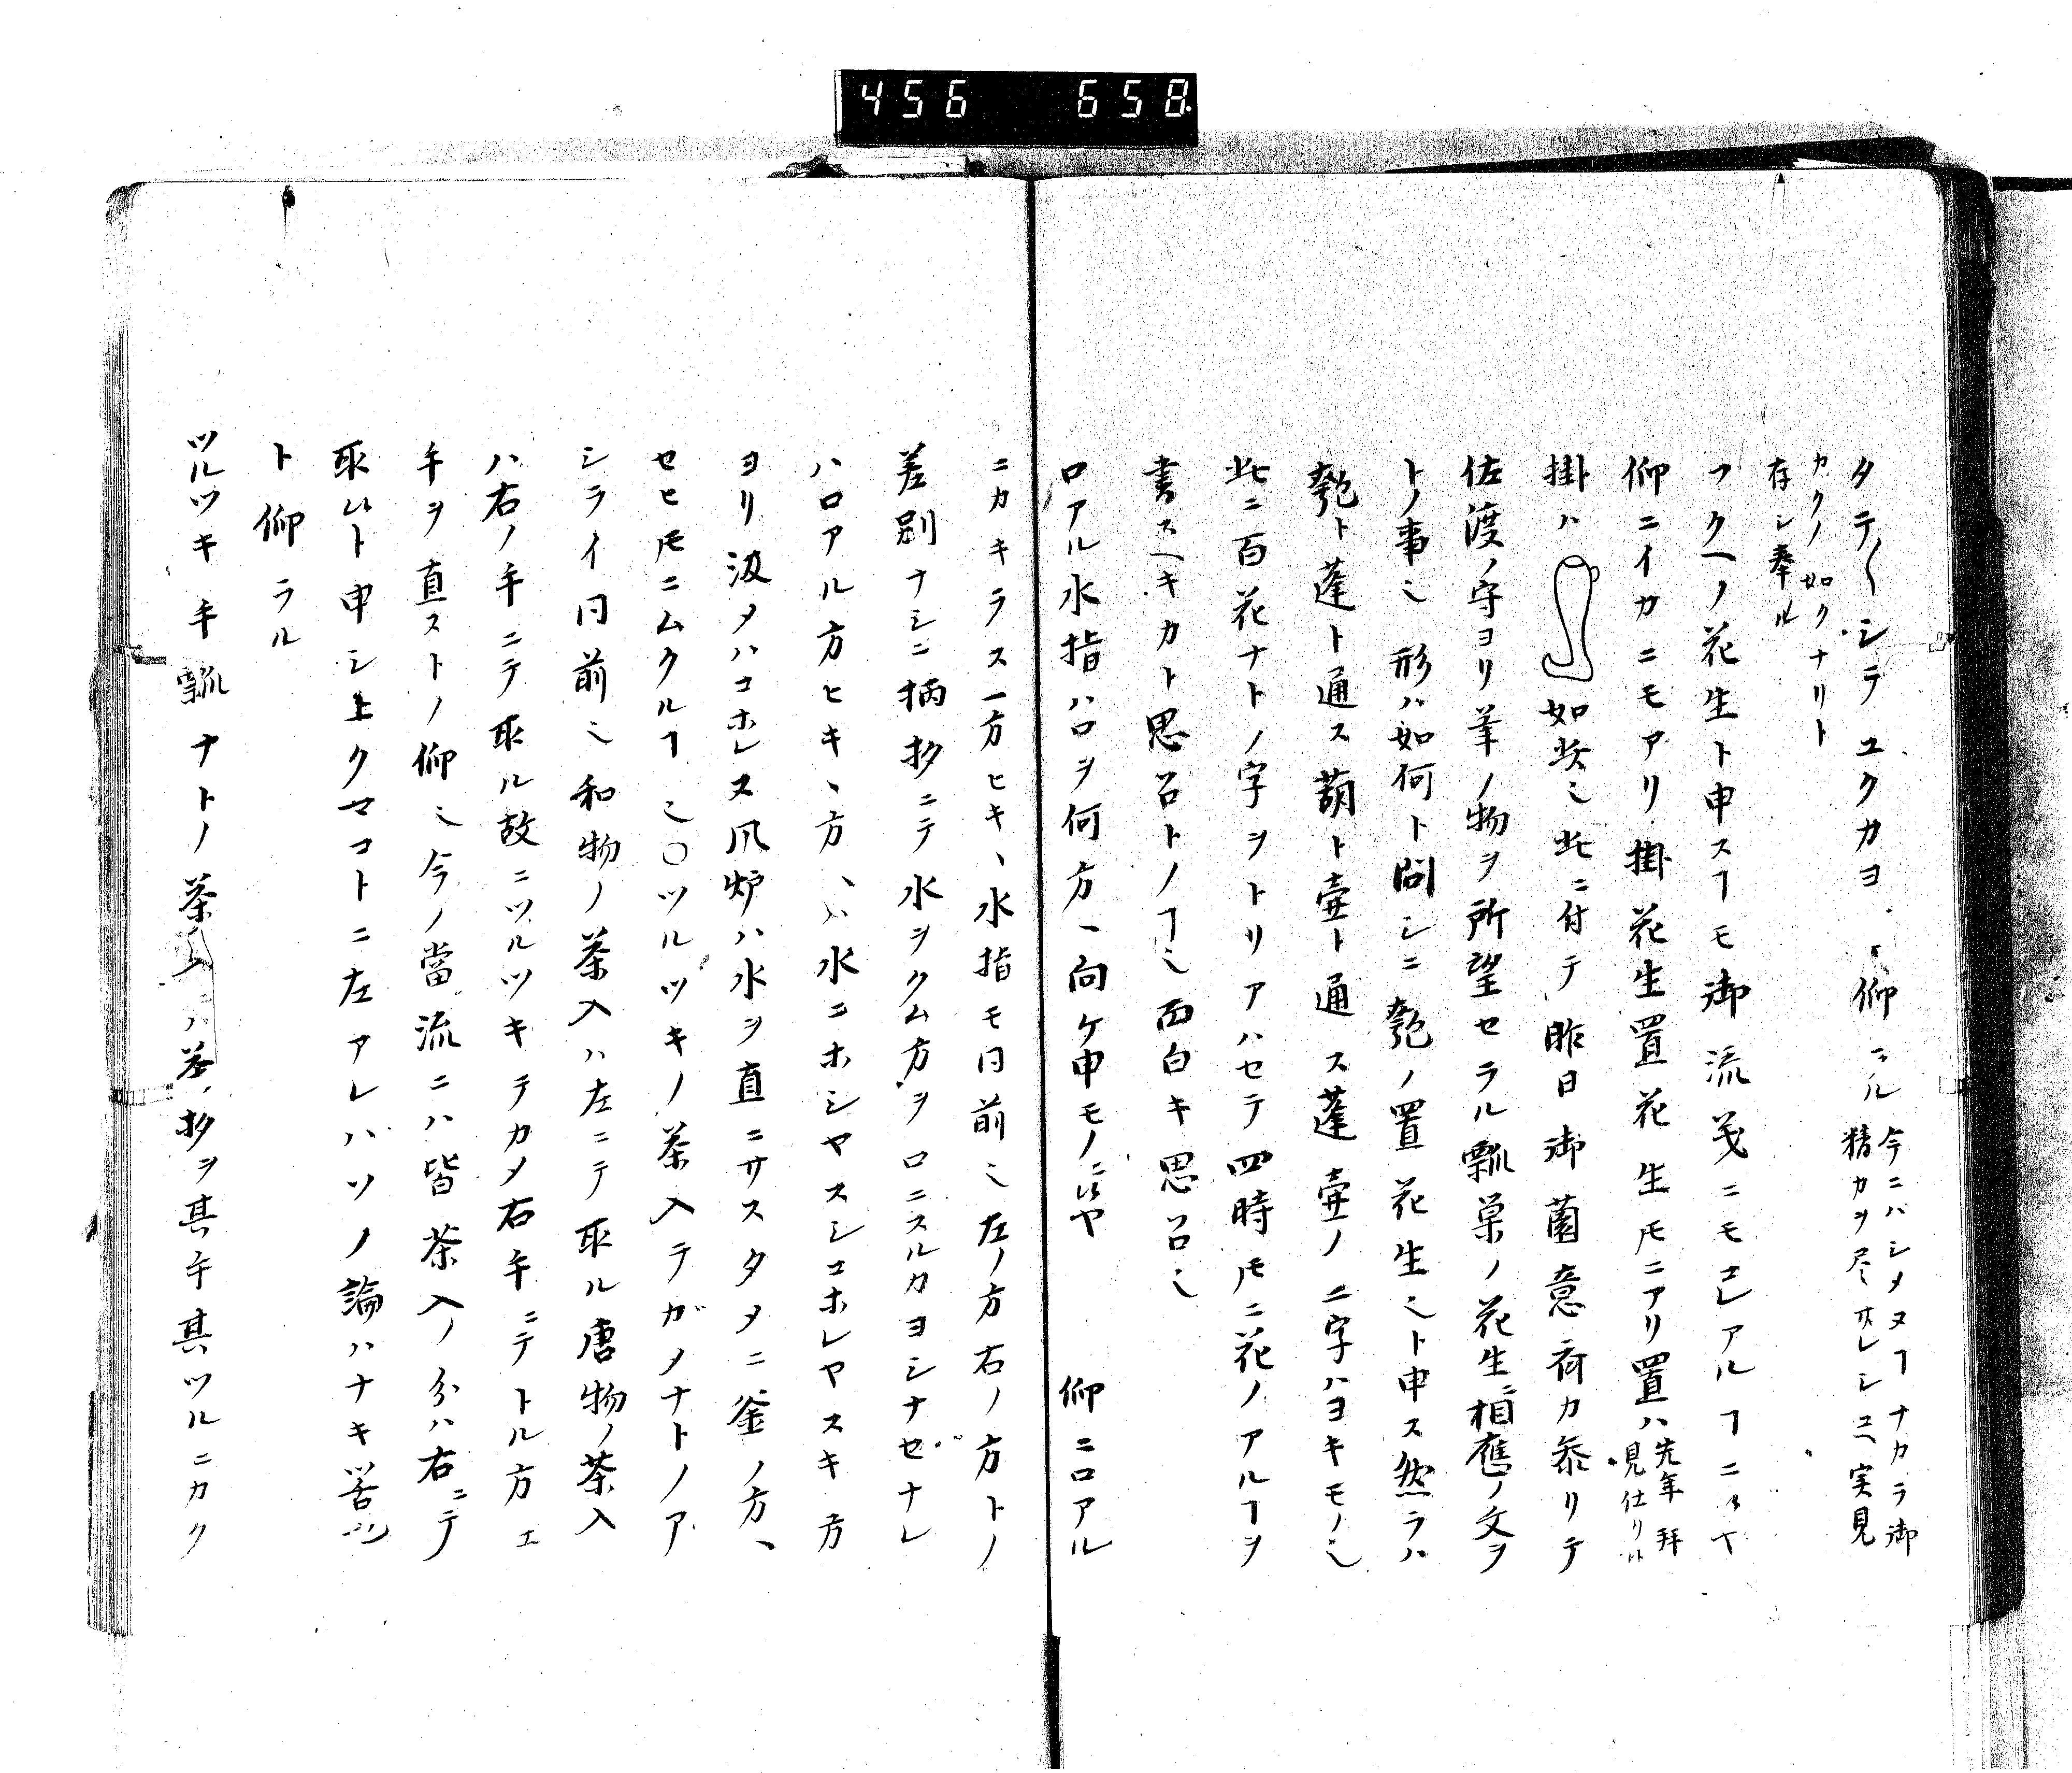 456 658
タテ〱シテユクカヨ、ト仰ラル 今ニハシメヌヿナカラ御
精力ヲ尽サレシユヘ実見
カクノ如クナリト
存シ奉ル
フクヘノ花生ト申スヿモ御流義ニモコレアルヿニ候ヤ
仰ニイカニモアリ掛花生置花生𪜈ニアリ置ハ 先年拝
見仕リ候
掛ハ 如此也此ニ付テ昨日御薗意斎カ参リテ
佐渡ノ守ヨリ筆ノ物ヲ所望セラル瓢箪ノ花生ニ相應ノ文ヲ
トノ事也形ハ如何ト問シニ匏ノ置花生也ト申ス然ラハ
匏ト蓬ト通ス葫ト壷ト通ス蓬壷ノ二字ハヨキモノ也
此ニ百花ナトノ字ヲトリアハセテ四時𪜈ニ花ノアルヿヲ
書スヘキカト思召トノヿ也面白キ思召也
口アル水指ハ口ヲ何方ヘ向ケ申モノニ候ヤ 仰ニ口アル
ニカキラス一方ヒキヽ水指モ同前也左ノ方右ノ方トノ
差別ナシニ柄杓ニテ水ヲクム方ヲ口ニスルカヨシナセナレ
ハ口アル方ヒキヽ方ハ水ニホシヤスシコホレヤスキ方
ヨリ汲タハコホレヌ風炉ハ水ヲ直ニサスタメニ釜ノ方ヘ
セヒ𪜈ニムクルヿ也〇ツルツキノ茶入テガメナトノア
シライ同前也和物ノ茶入ハ左ニテ取ル唐物ノ茶入
ハ右ノ手ニテ取ル故ニツルツキテカメ右手ニテトル方エ
手ヲ直ストノ仰也今ノ當流ニハ皆茶入ノ分ハ右ニテ
取候ト申シ上クマコトニ左アレハソノ論ハナキ筈也
ト仰ラル
ツルツキ手瓢ナトノ茶入ハ茶杓ヲ其手其ツルニカク